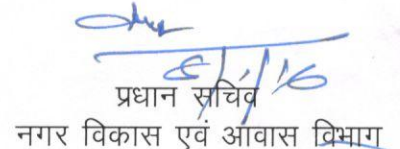 8/1/16
प्रधान सचिव
नगर विकास एवं आवास विभाग